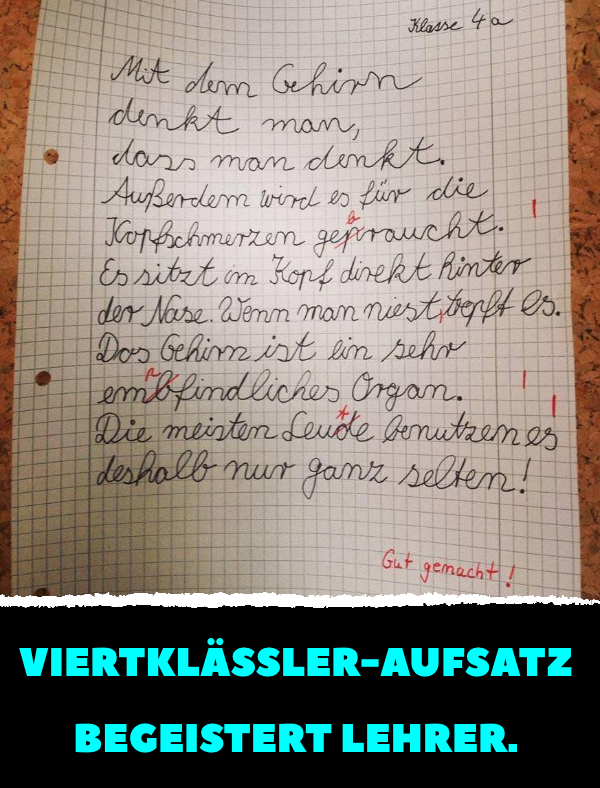 Klasse 4a
Mit dem Gehirn
denkt man,
dass man denkt.
Außerdem wird es für die
Kopfschmerzen gepraucht.
b
Es sitzt im Kopf direkt hinter
der Nase. Wenn man niest, tropft es.
Das Gehirn ist ein sehr
embfindliches Organ.
Die meisten Leude benutzen es
t
deshalb nur ganz selten!
Gut gemacht!
VIERTKLÄSSLER-AUFSATZ
BEGEISTERT LEHRER.